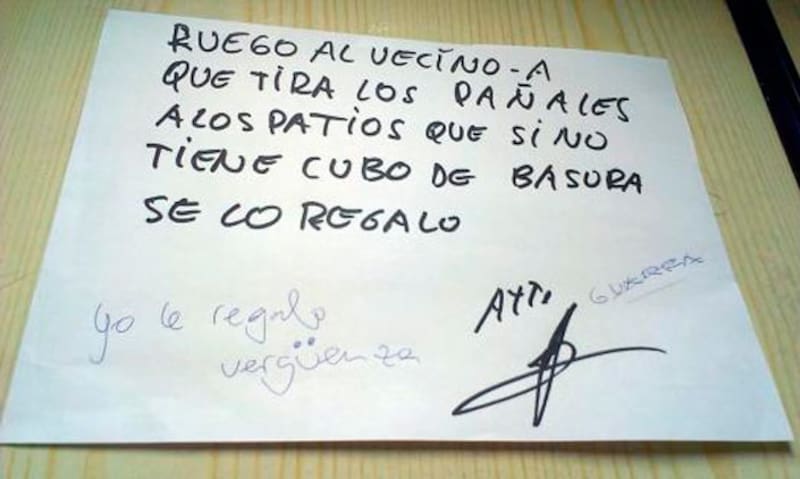 RUEGO AL VECINO-A
QUE TIRA LOS PAÑALES
A LOS PATIOS QUE SI NO
TIENE CUBO DE BASURA
SE LO REGALO
ATT.
GUARRA
yo le regalo
vergüenza